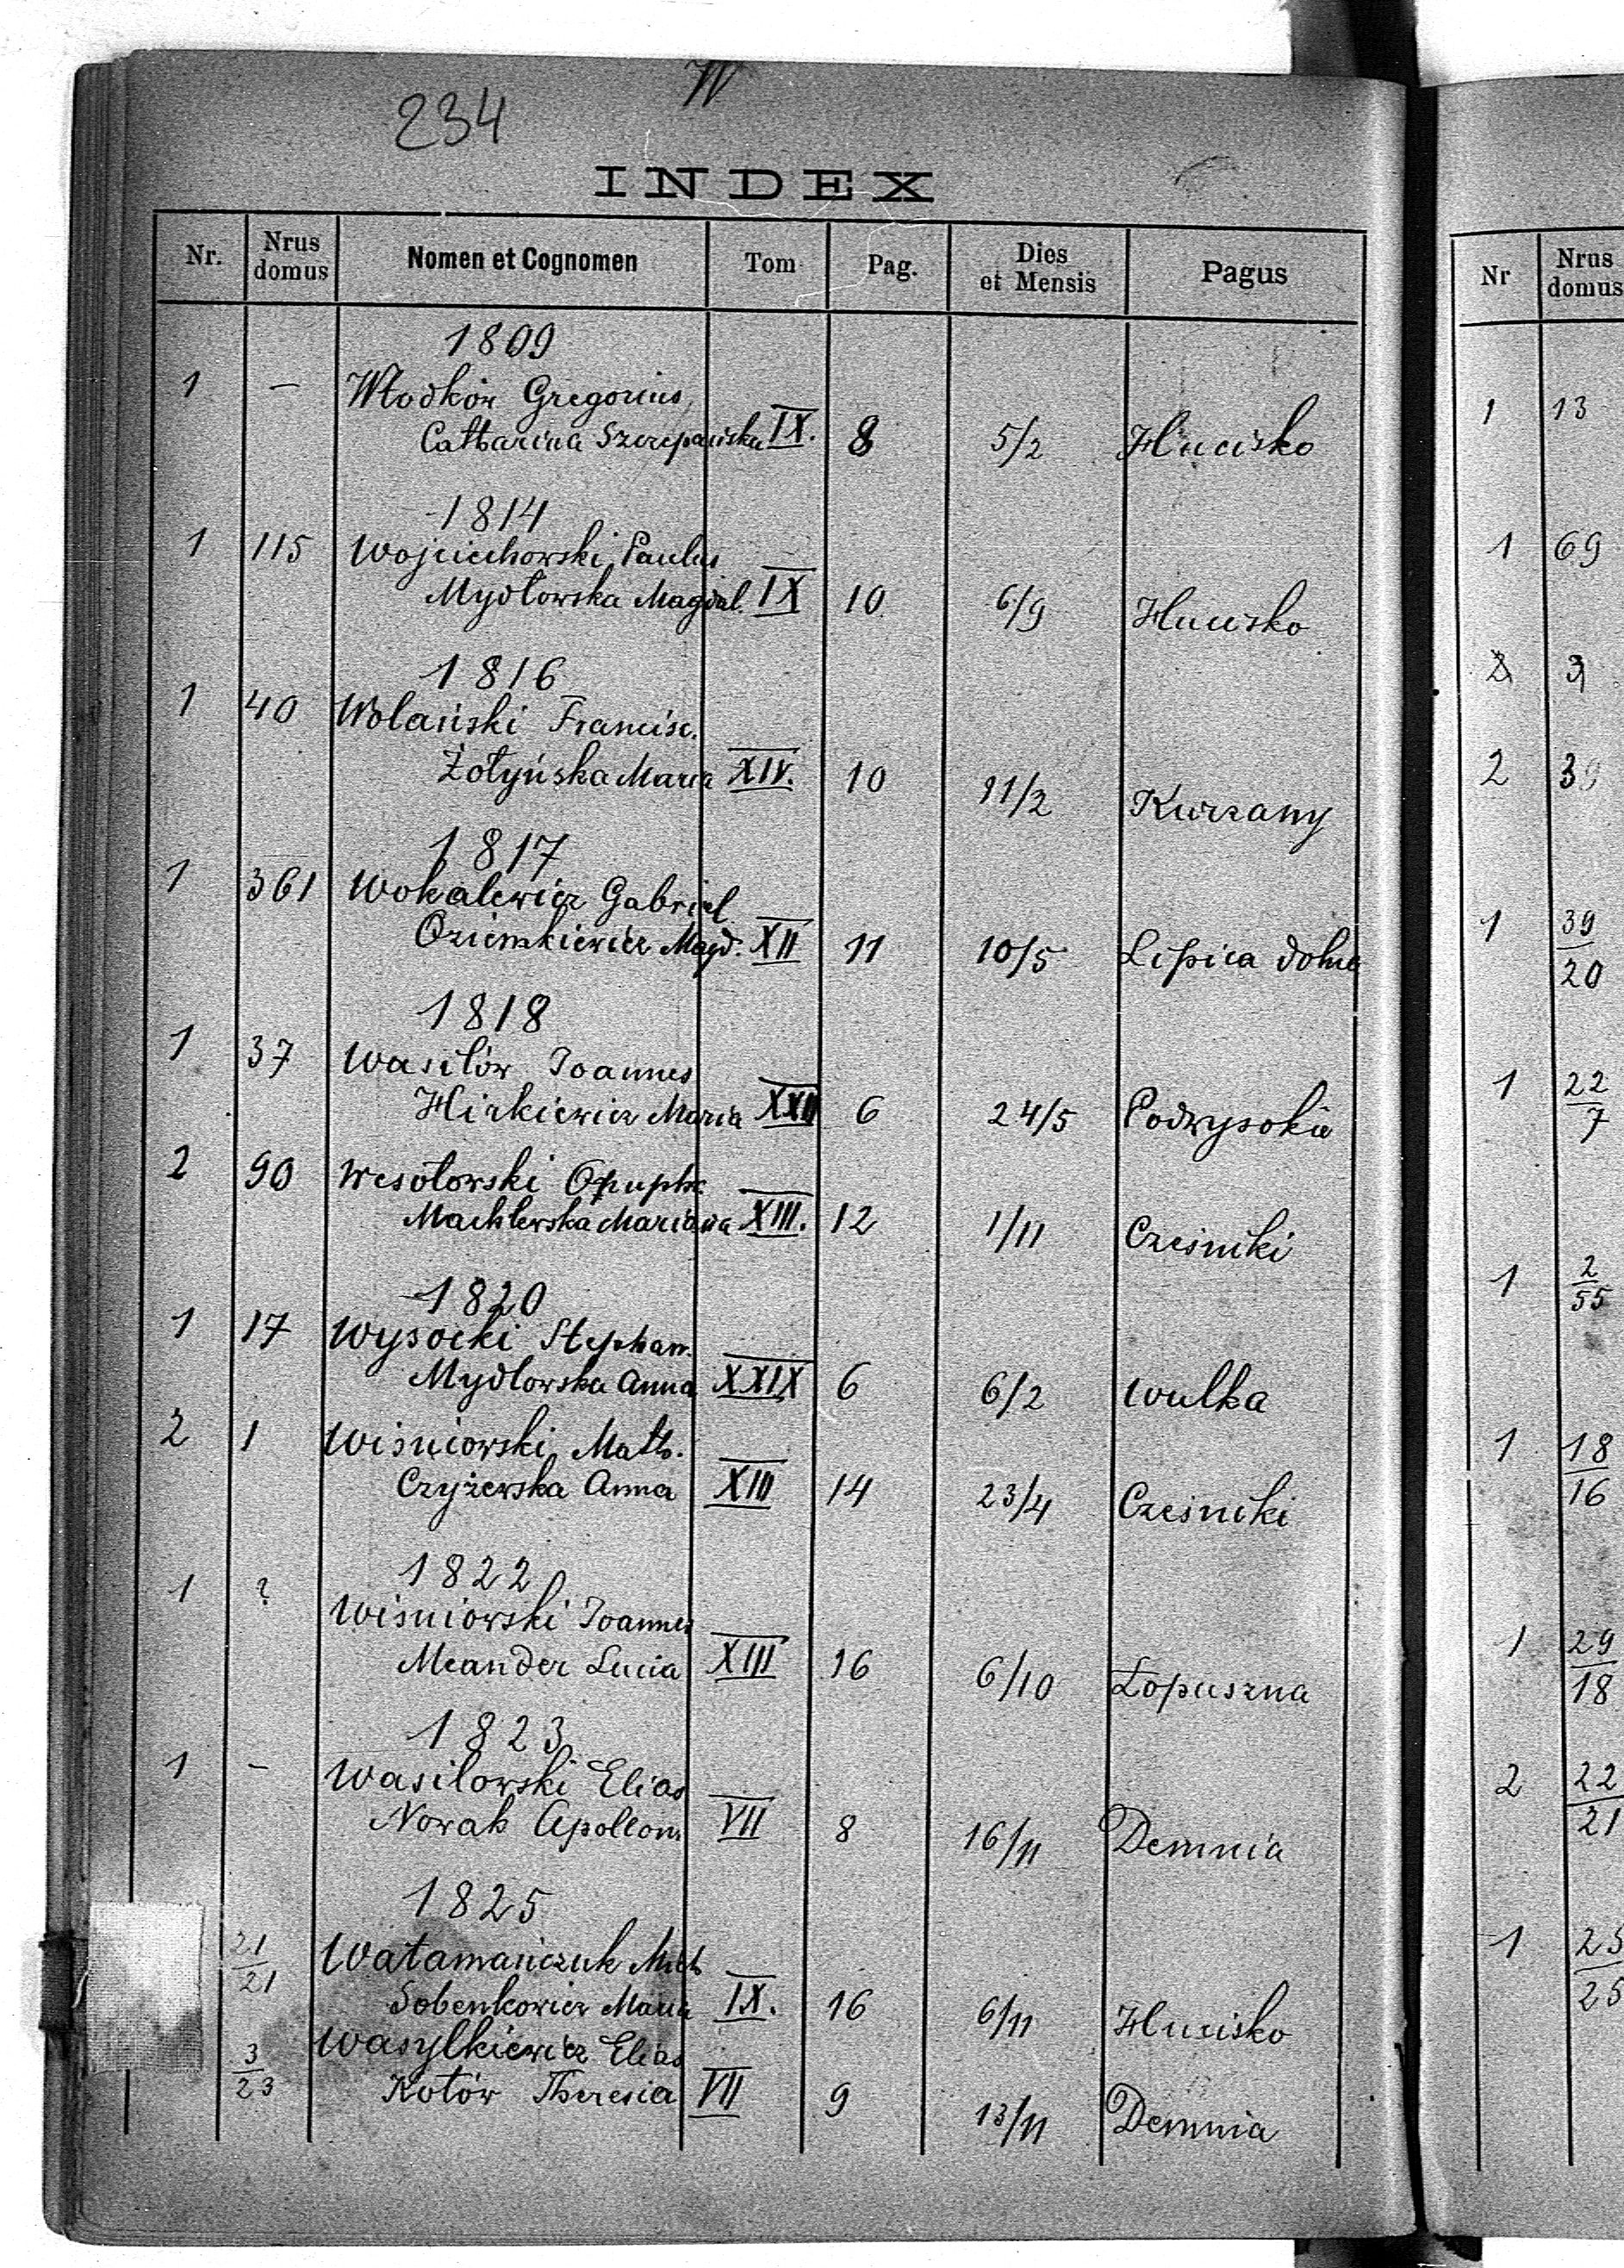 W
234
INDEX
Nr. Nrus domus Nomen et Cognomen Tom Pag. Dies et Mensis Pagus
1809
1 — Włodków Gregorius,
Catharina Szczepańska IX. 8 5/2 Hucisko
1814
1 115 Wojciechowski Paulus
Mydłowska Magdal. IX 10 6/9 Hucisko
1816
1 40 Wolański Francisc.
Żołyńska Maria XIV. 10 11/2 Kurzany
1817
1 361 Wokalewicz Gabriel
Oziemkiewicz Magd. XII 11 10/5 Lipica dolna
1818
1 37 Wasilów Joannes
Hirkiewicz Maria XXII 6 24/5 Podwysokie
2 90 Wesołowski
Machlewska Marianna XIII. 12 1/11 Cześniki
1820
1 17 Wysocki Stephan.
Mydłowska Anna XXIX 6 6/2 Wulka
2 1 Wiśniowski Math.
Czyżewska Anna XIII 14 23/4 Cześniki
1822
1 ? Wiśniowski Joannes
Meander Lucia XIII 16 6/10 Łopuszna
1823
1 – Wasilowski Elias
Nowak Apollon. VII 8 16/11 Demnia
1825
21/21 Watamańczuk Mich
Sobenkowicz Maria IX. 16 6/11 Hucisko
3/23 Wasylkiewicz Elias
Kotów Theresia VII 9 13/11 Demnia
Nr Nrus domus
1 13
1 69
2 3
2 39
1 39/20
1 22/7
1 2/55
1 18/16
1 29/18
2 22/21
1 25